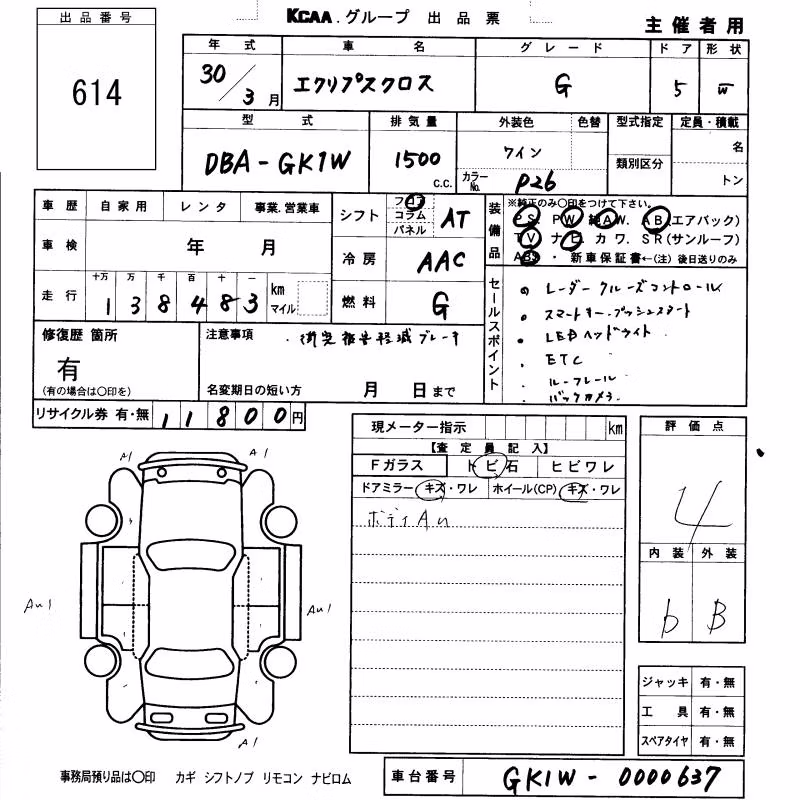 KCAA.グループ 出品票
主催者用
出品番号
614
年式 車名 グレード ドア 形状
30/3月 エクリプスクロス G 5 W
型式 排気量 外装色 色替 型式指定 定員・積載
DBA-GK1W 1500 c.c. ワイン 名
カラーNo. P26 類別区分 トン
車歴 自家用 レンタ 事業.営業車
車検 年 月
走行 十万 万 千 百 十 一 km マイル
1 3 8 4 8 3
シフト フロア コラム パネル AT
冷房 AAC
燃料 G
装備品
※純正のみ○印をつけて下さい。
P.S. P W. 純A W. A B(エアバック)
T V ナ ビ カ ワ. S R(サンルーフ)
A B S ・ 新車保証書←(注) 後日送りのみ
セールスポイント
レーダークルーズコントロール
スマートキー.プッシュスタート
LEDヘッドライト
ETC
ルーフレール
バックカメラ
修復歴 箇所
有
(有の場合は○印を)
注意事項 ・衝突被害軽減ブレーキ
名変期日の短い方 月 日まで
リサイクル券 有・無 11800円
現メーター指示 km
【査定員記入】
Fガラス トビ石 ヒビワレ
ドアミラー キズ・ワレ ホイール(CP) キズ・ワレ
ボディAu
評価点
4
内装 外装
b B
A1 A1
A1
Au1 Au1
A1
ジャッキ 有・無
工具 有・無
スペアタイヤ 有・無
事務局預り品は○印 カギ シフトノブ リモコン ナビロム
車台番号 GK1W-0000637